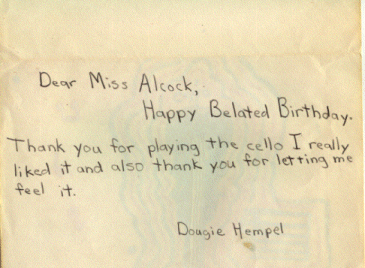 Dear Miss Alcock,
Happy Belated Birthday.
Thank you for playing the cello I really
liked it and also thank you for letting me
feel it.
Dougie Hempel